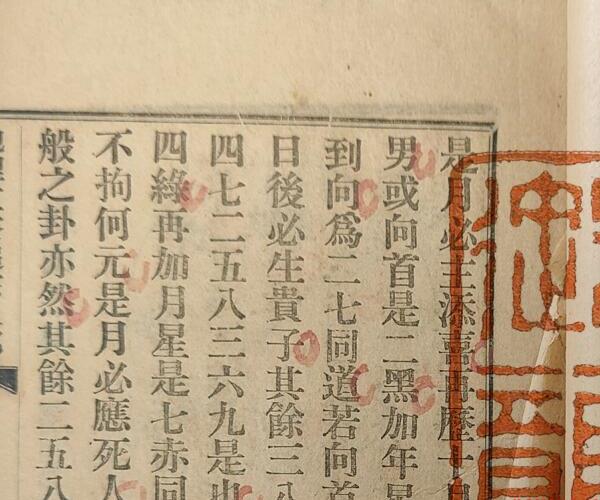 是月必主添喜再歷十月
男或向首是二黑加年星
到向爲二七同道若向首
日後必生貴子其餘三八
四七二五八三六九是也
四綠再加月星是七赤同
不拘何元是月必應死人
般之卦亦然其餘二五八